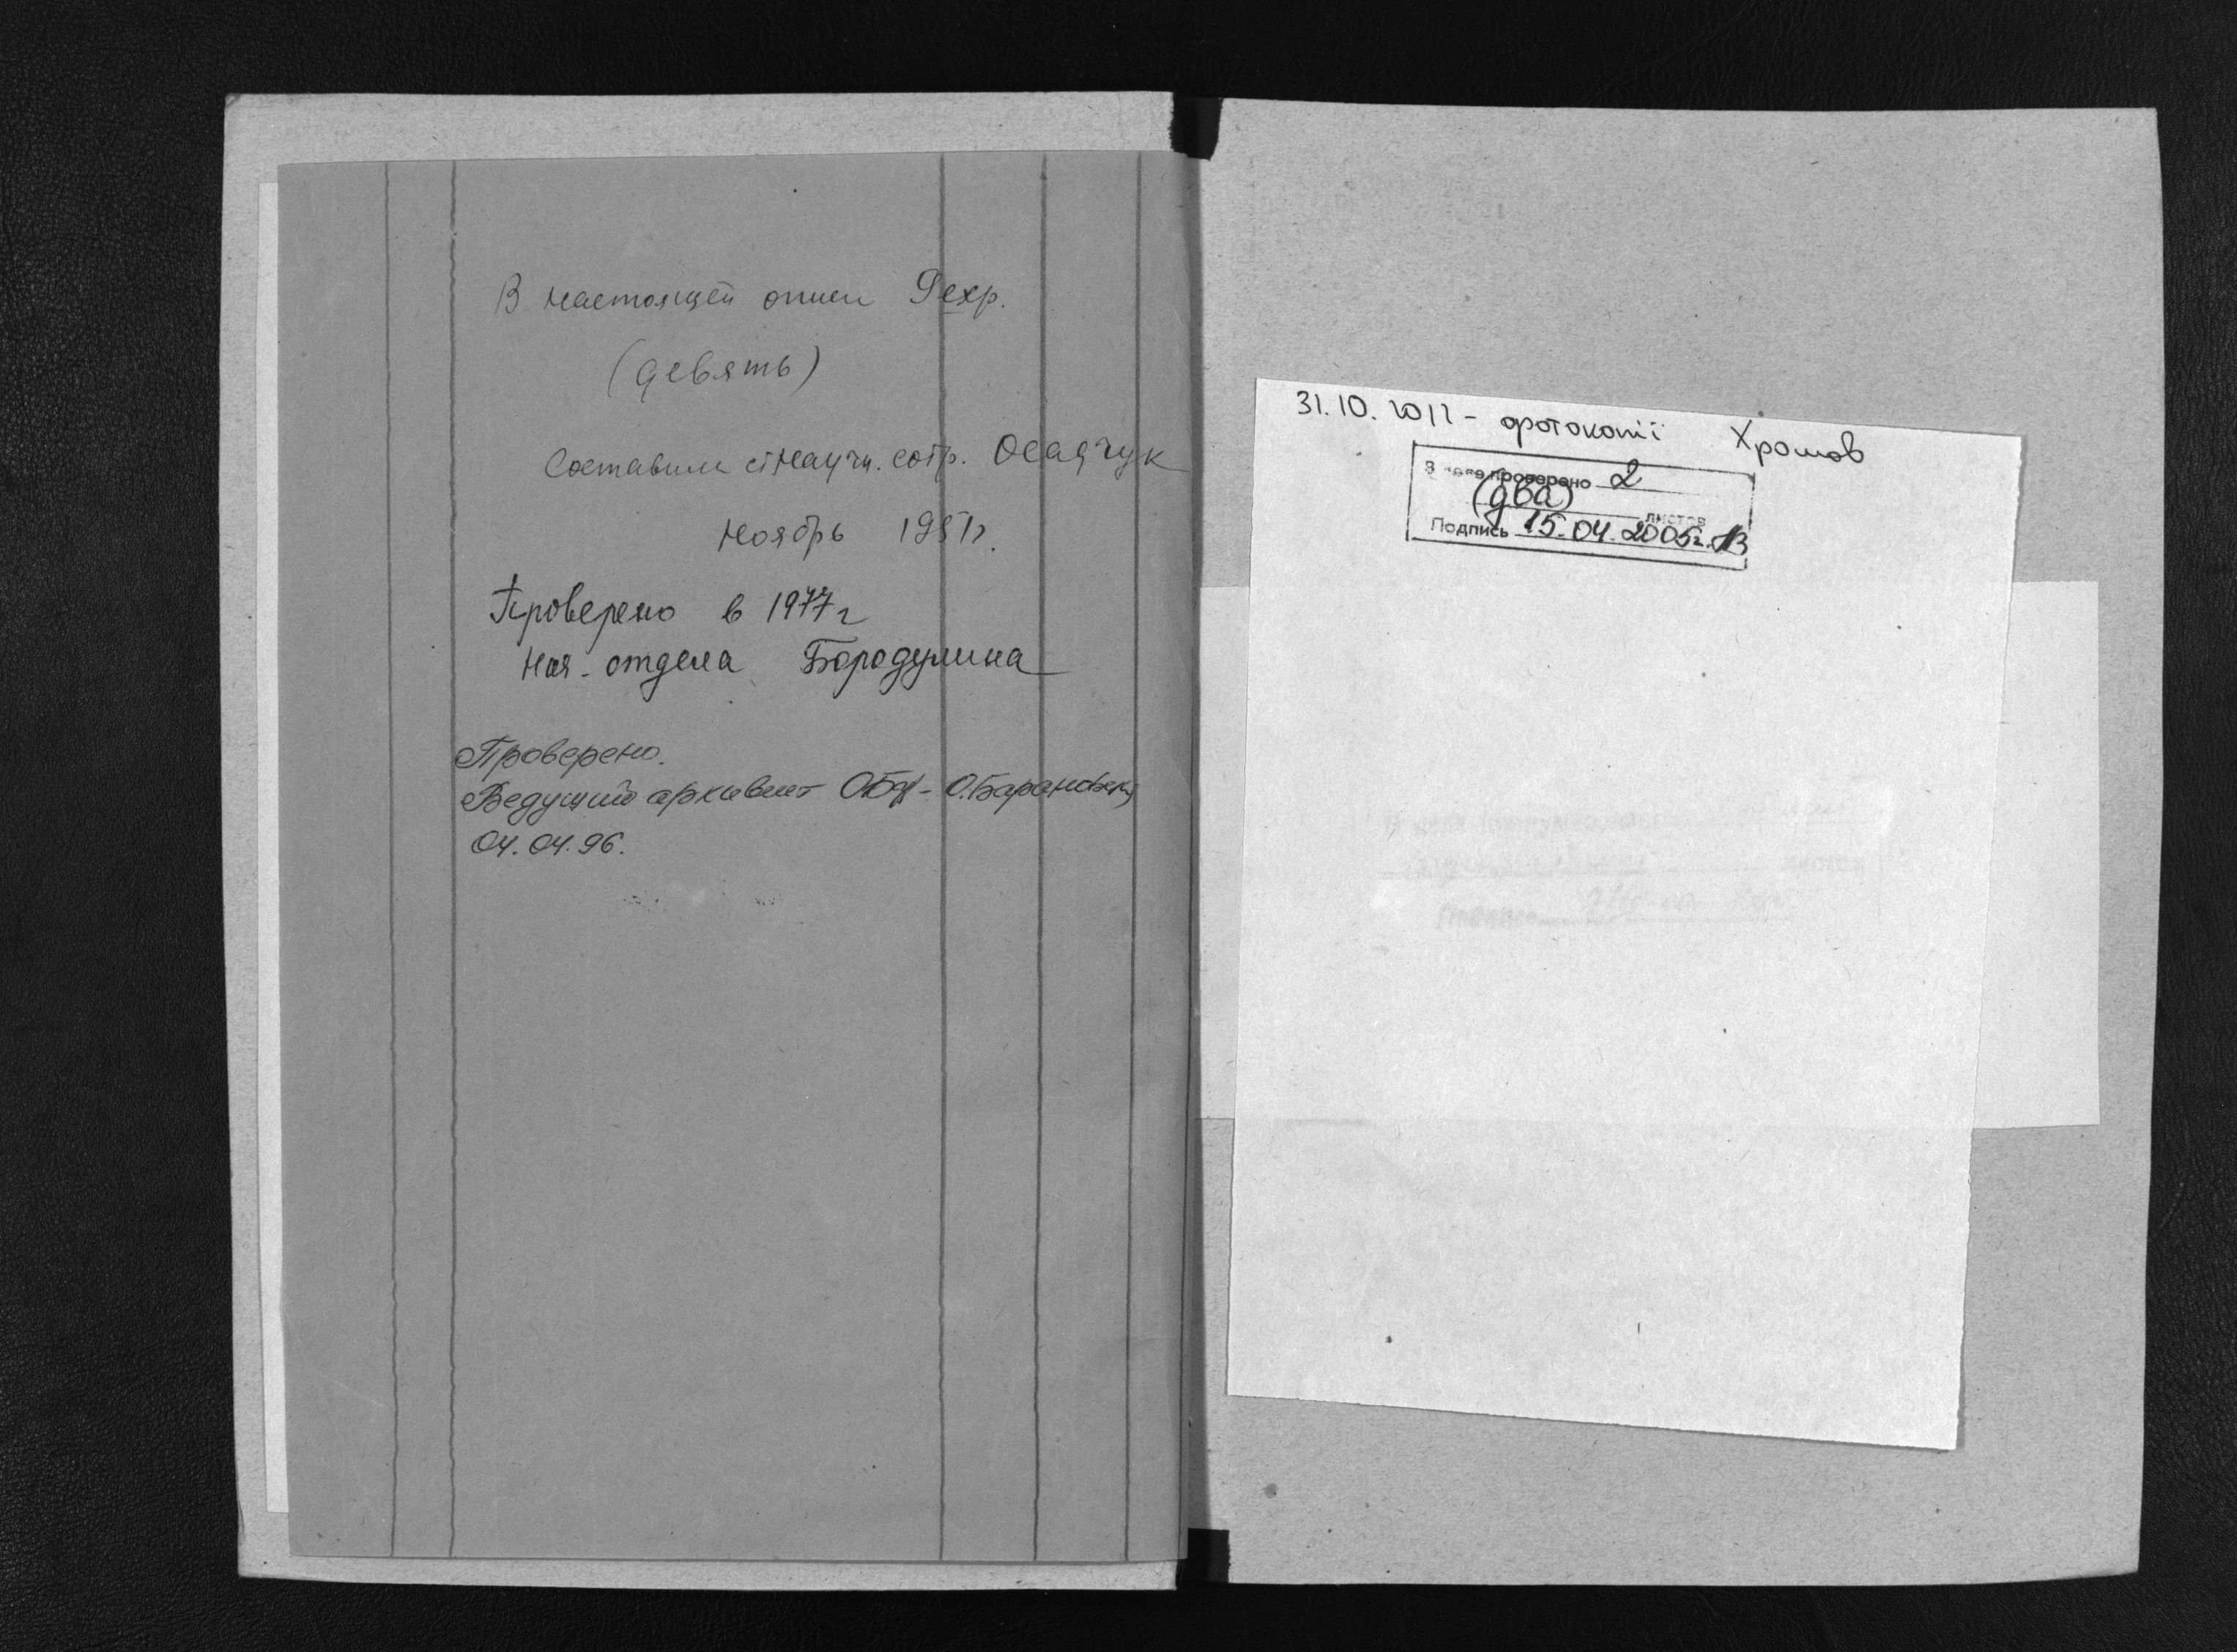 В настоящей описи 9 ехр.
(девять)
Составил ст. научн. сотр. Осадчук
Ноябрь 1951г.
Проверено в 1977г
Нач. отдела Бородулина
Проверено.
Ведущий архивист О.Барановск
04.04.96.
31.10.2012 - фотокопії Хромов
В деле проверено 2
(два) листов
Подпись 15.04.2005г.